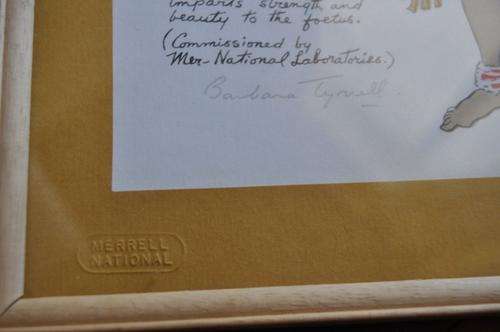 imparts strength and
beauty to the foetus.
(Commissioned by
Mer-National Laboratories.)
Barbara Tyrrell.
MERRELL
NATIONAL